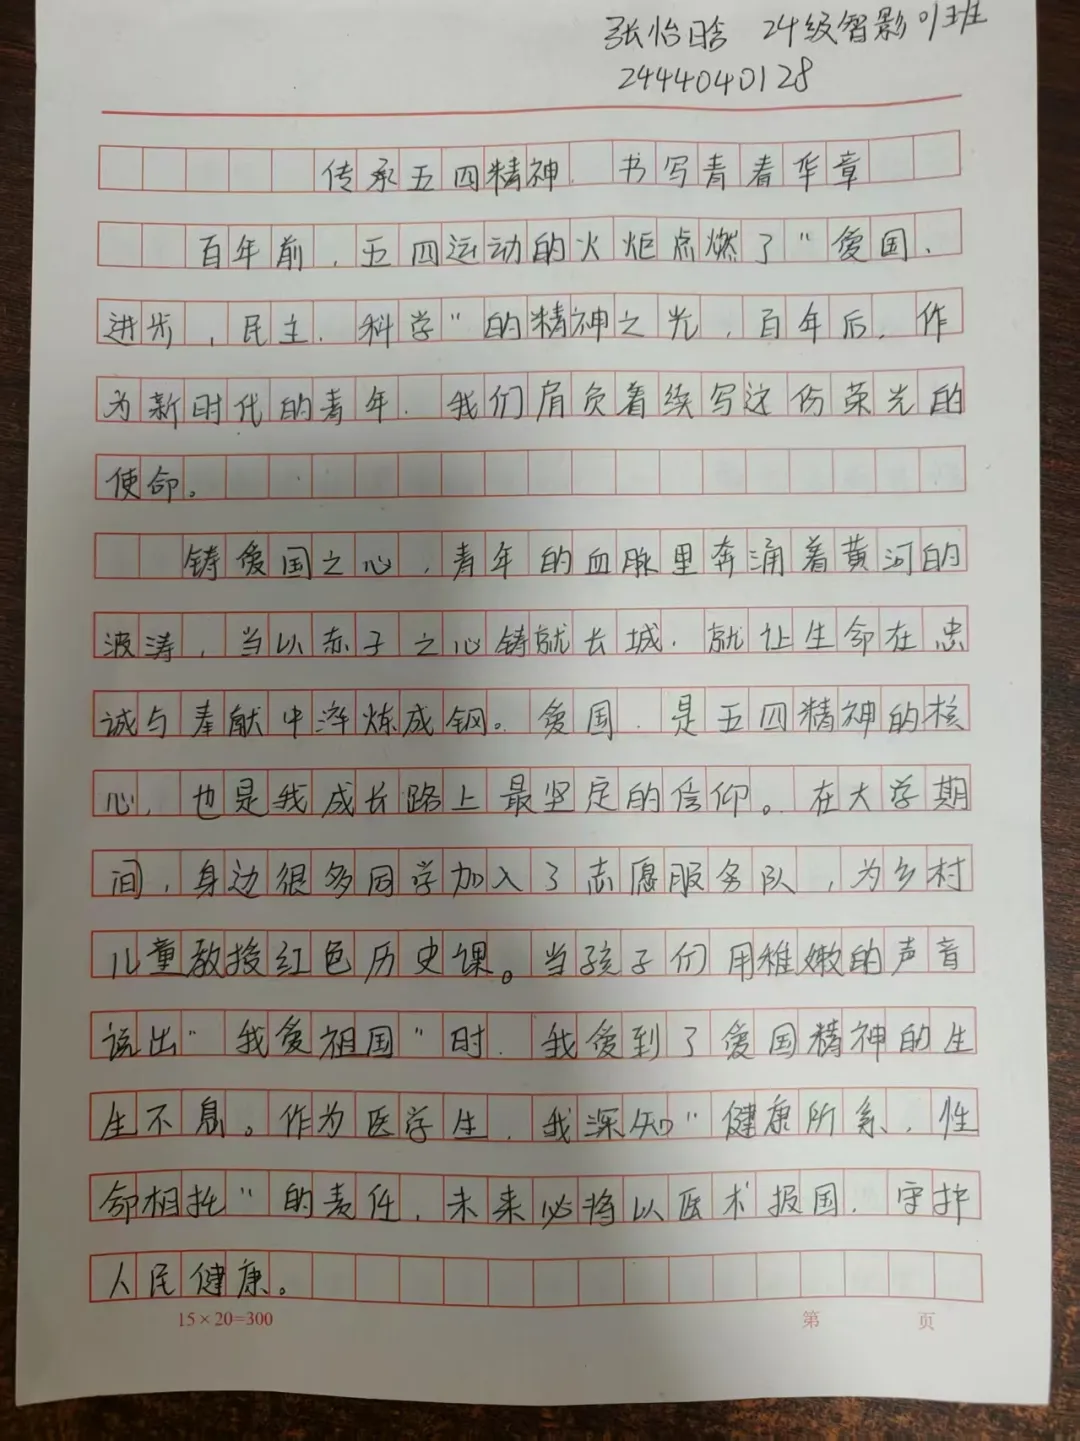 张怡晗 24级智影01班
2444040128
传承五四精神 书写青春华章
百年前,五四运动的火炬点燃了"爱国、
进步,民主、科学"的精神之光,百年后,作
为新时代的青年、我们肩负着续写这份荣光的
使命。
铸爱国之心,青年的血脉里奔涌着黄河的
波涛,当以赤子之心铸就长城,就让生命在忠
诚与奉献中淬炼成钢。爱国、是五四精神的核
心、也是我成长路上最坚定的信仰。在大学期
间,身边很多同学加入了志愿服务队,为乡村
儿童教授红色历史课。当孩子们用稚嫩的声音
说出"我爱祖国"时、我爱到了爱国精神的生
生不息。作为医学生,我深知"健康所系,性
命相托"的责任,未来必将以医术报国、守护
人民健康。
15×20=300
第 页